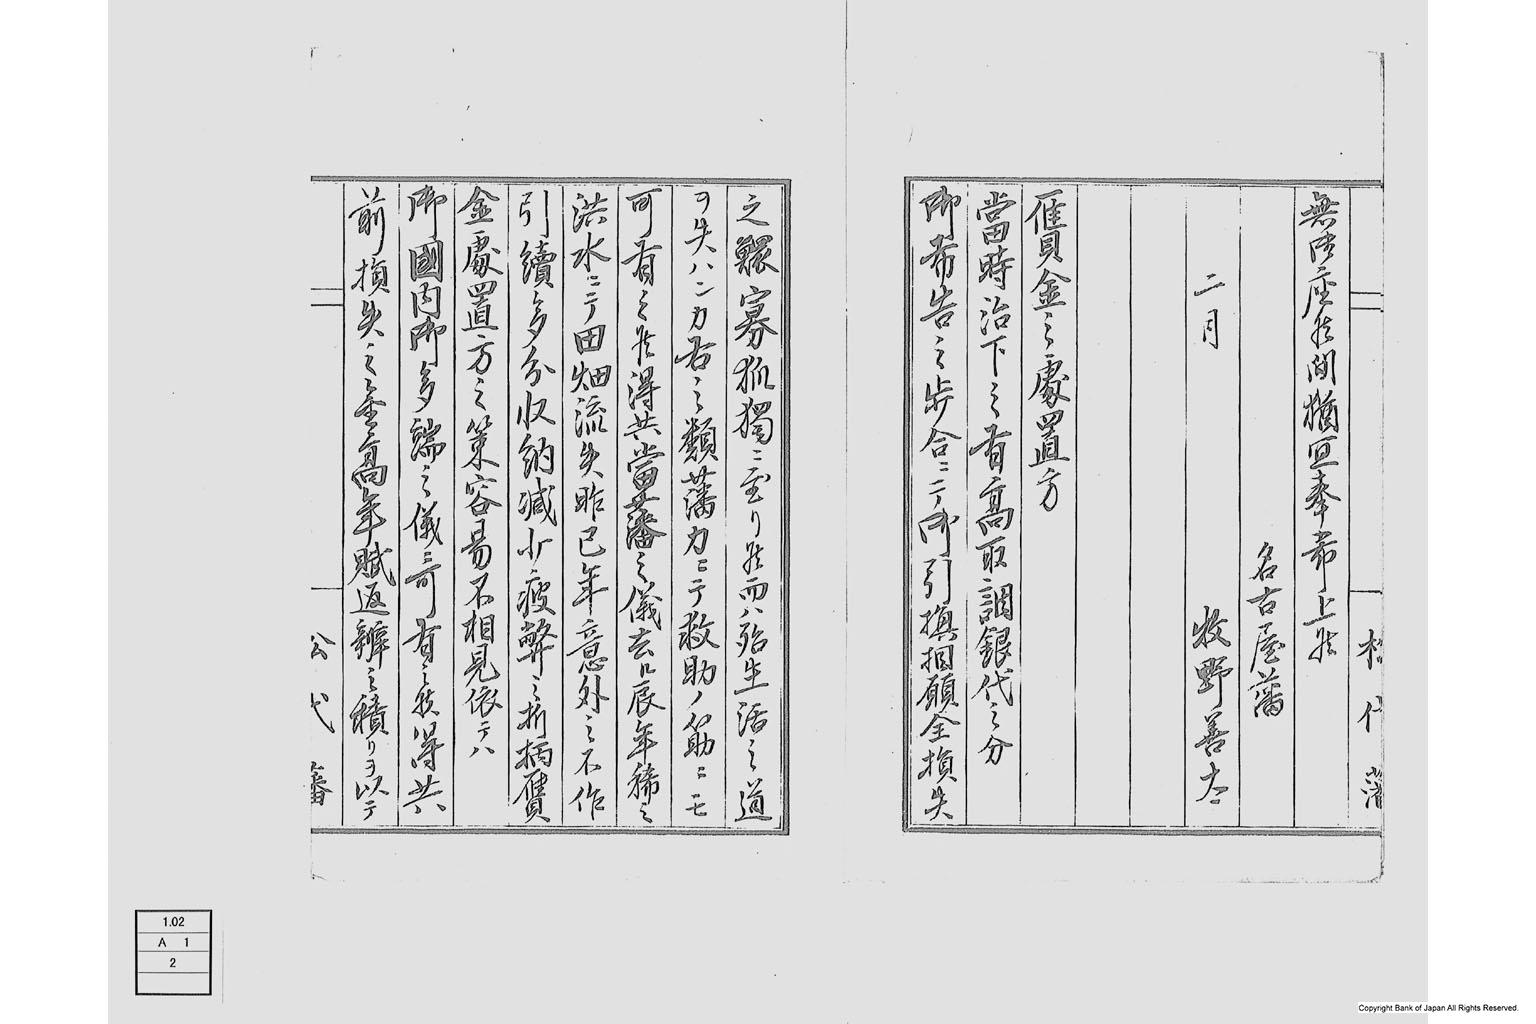 無御座候間猶宜奉希上候
名古屋藩
二月　牧野善太
贋金之處置方
當時治下之有高取調銀代之分
御布告之歩合ニテ御引換相願全損失
松代藩
之鰥寡孤獨ニ至リ候而ハ殆生活之道
ヲ失ハンカ右之類藩力ニテ救助ノ筋ニモ
可有之候得共當藩之儀去ル辰年稀之
洪水ニテ田畑流失昨巳年意外之不作
引續多分収納減少疲弊之折柄贋
金處置方之策容易不相見依テハ
御國内御多端之儀ニ可有之候得共
前損失之金高年賦返辨之積リヲ以テ
松代藩
1.02
A 1
2
Copyright Bank of Japan All Rights Reserved.